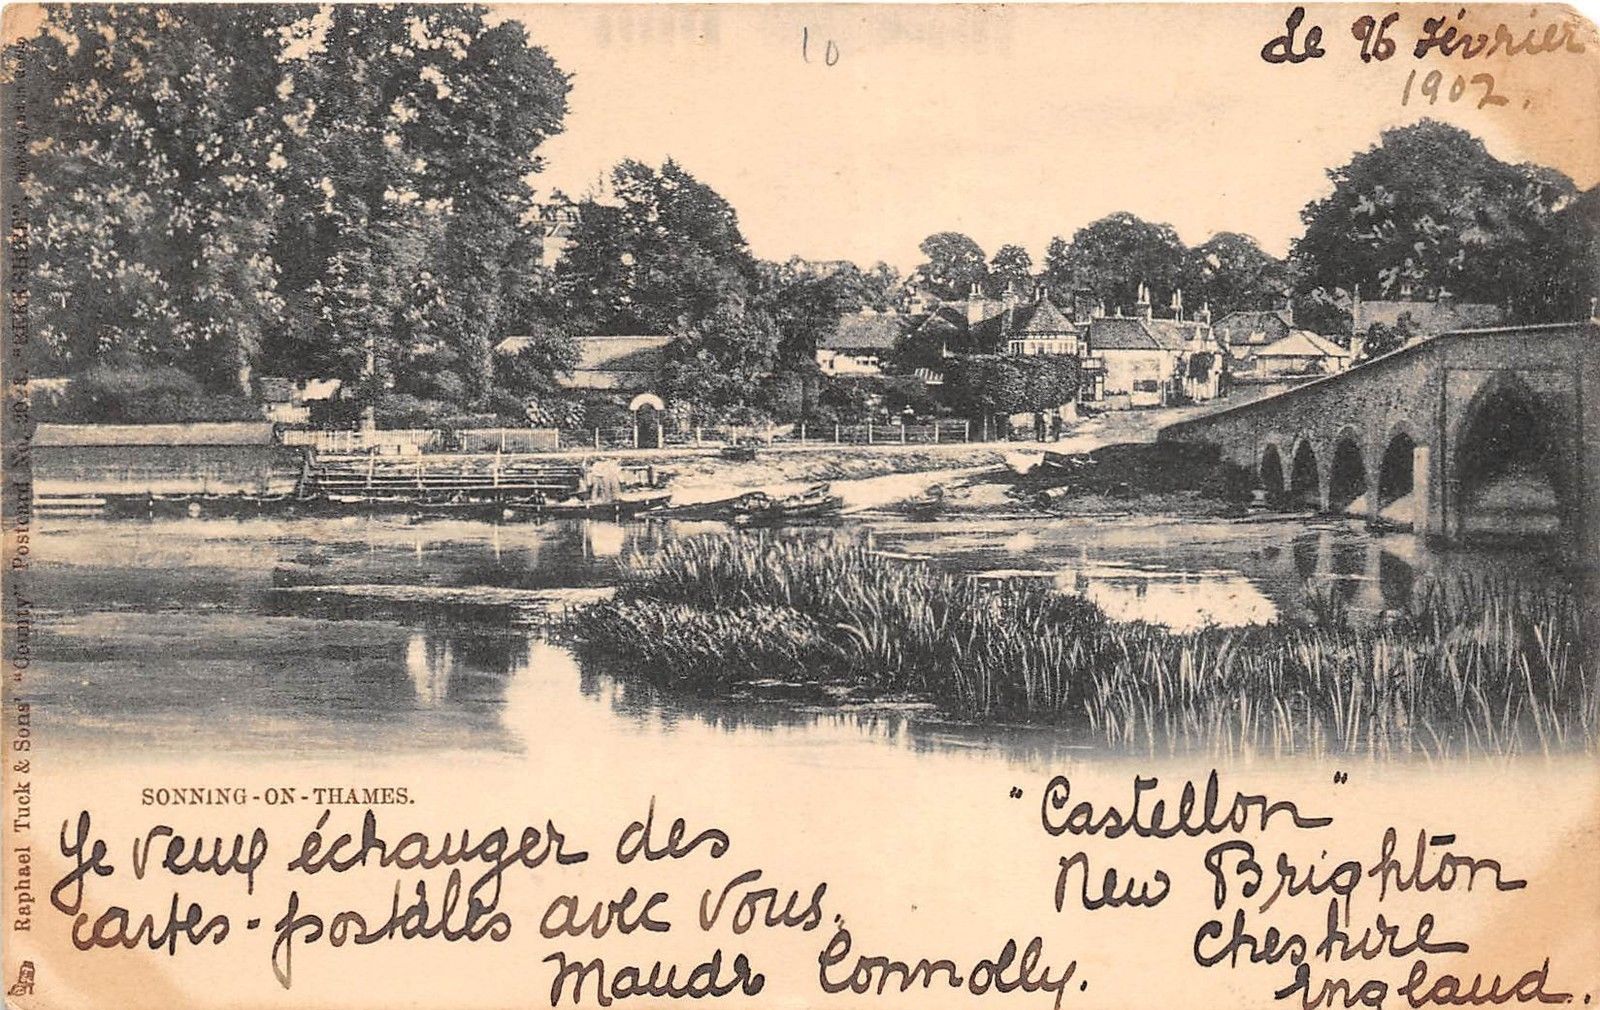 10
Le 26 Février
1902.
Raphael Tuck & Sons' "County" Postcard No. 2028. "BERKSHIRE",
SONNING-ON-THAMES.
Je veux échanger des
cartes-postales avec vous.
Maude Connolly.
"Castellon"
New Brighton
Cheshire
England.